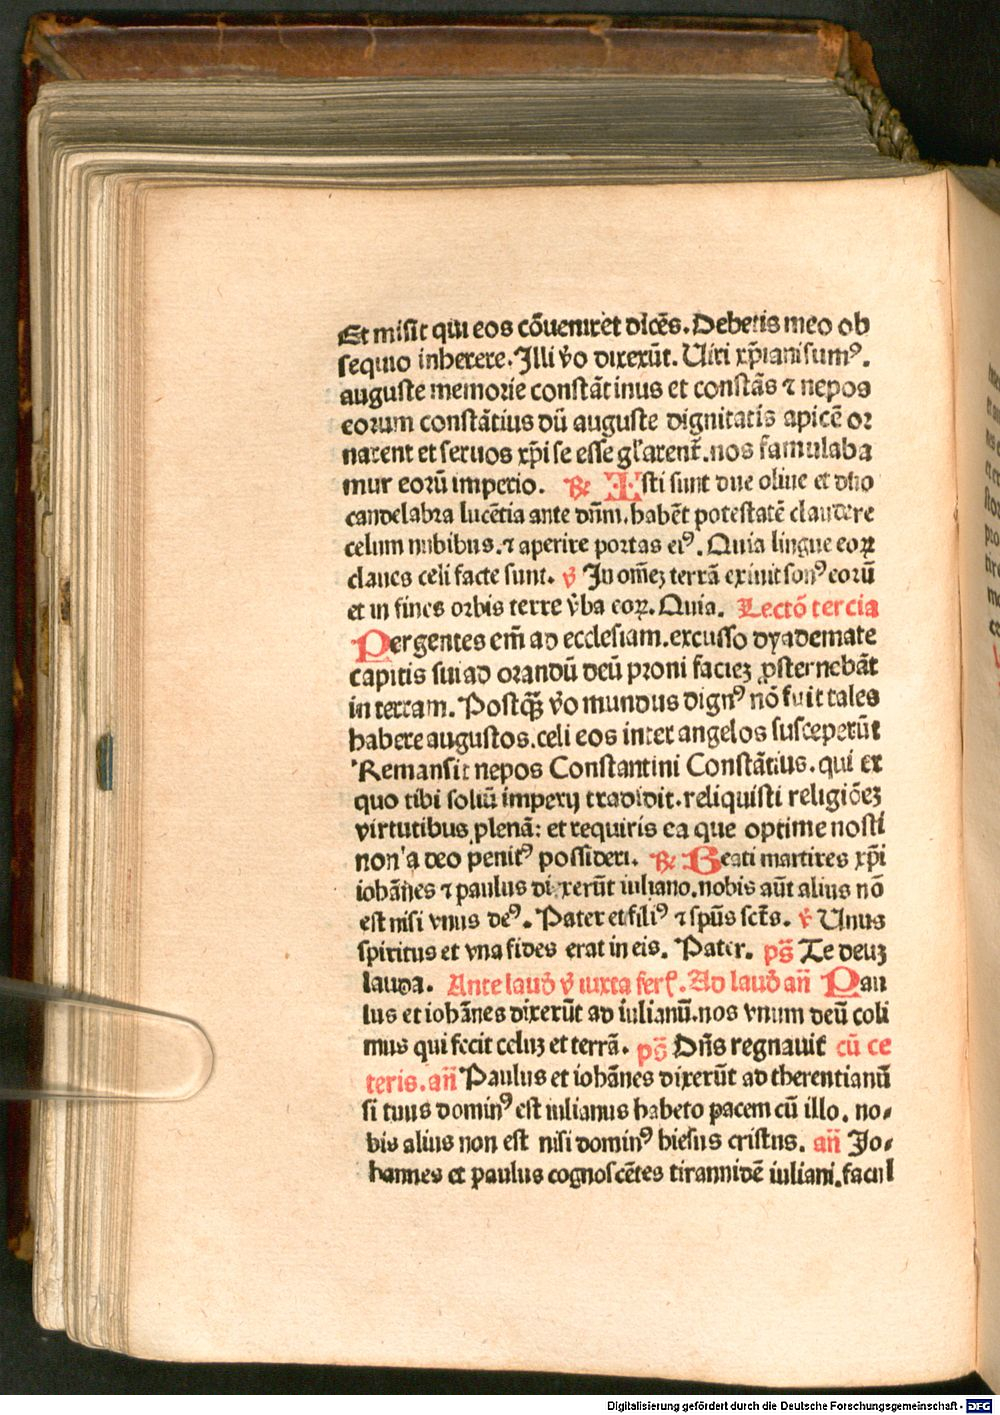 Et misit qui eos cōueniret dicēs. Debetis meo ob
sequio inherere. Illi v̄o dixerūt. Uiri xp̄iani sumꝰ.
auguste memorie constātinus et constās ⁊ nepos
eorum constātius dū auguste dignitatis apicē or
narent et seruos xp̄i se esse gl̄arent̄. nos famulaba
mur eorū imperio. ℟ Isti sunt due oliue et duo
candelabra lucētia ante dn̄m. habēt potestatē claudere
celum nubibus. ⁊ aperire portas eiꝰ. Quia lingue eoꝝ
claues celi facte sunt. ℣ In om̄eꝫ terrā exiuit sonꝰ eorū
et in fines orbis terre v̄ba eoꝝ. Quia. Lectō tercia
Pergentes em̄ ad ecclesiam. excusso dyademate
capitis sui ad orandū deū proni facieꝫ ꝓsternebāt
in terram. Postqꝫ v̄o mundus dignꝰ nō fuit tales
habere augustos. celi eos inter angelos susceperūt
Remansit nepos Constantini Constātius. qui ex
quo tibi soliū imperij tradidit. reliquisti religiōeꝫ
virtutibus plenā: et requiris ea que optime nosti
non a deo penitꝰ possideri. ℟ Beati martires xp̄i
iohānes ⁊ paulus dixerūt iuliano. nobis aūt alius nō
est nisi vnus deꝰ. Pater et filiꝰ ⁊ spūs sct̄s. ℣ Unus
spiritus et vna fides erat in eis. Pater. ps̄ Te deuꝫ
lauda. Ante laud̄ v̄ iuxta fer̄. Ad laud̄ añ Pau
lus et iohānes dixerūt ad iulianū. nos vnum deū coli
mus qui fecit celuꝫ et terrā. ps̄ Dn̄s regnauit cū ce
teris. añ Paulus et iohānes dixerūt ad therentianū
si tuus dominꝰ est iulianus habeto pacem cū illo. no⸗
bis alius non est nisi dominꝰ hiesus cristus. añ Jo⸗
hannes et paulus cognoscētes tirannidē iuliani. facul
Digitalisierung gefördert durch die Deutsche Forschungsgemeinschaft - DFG